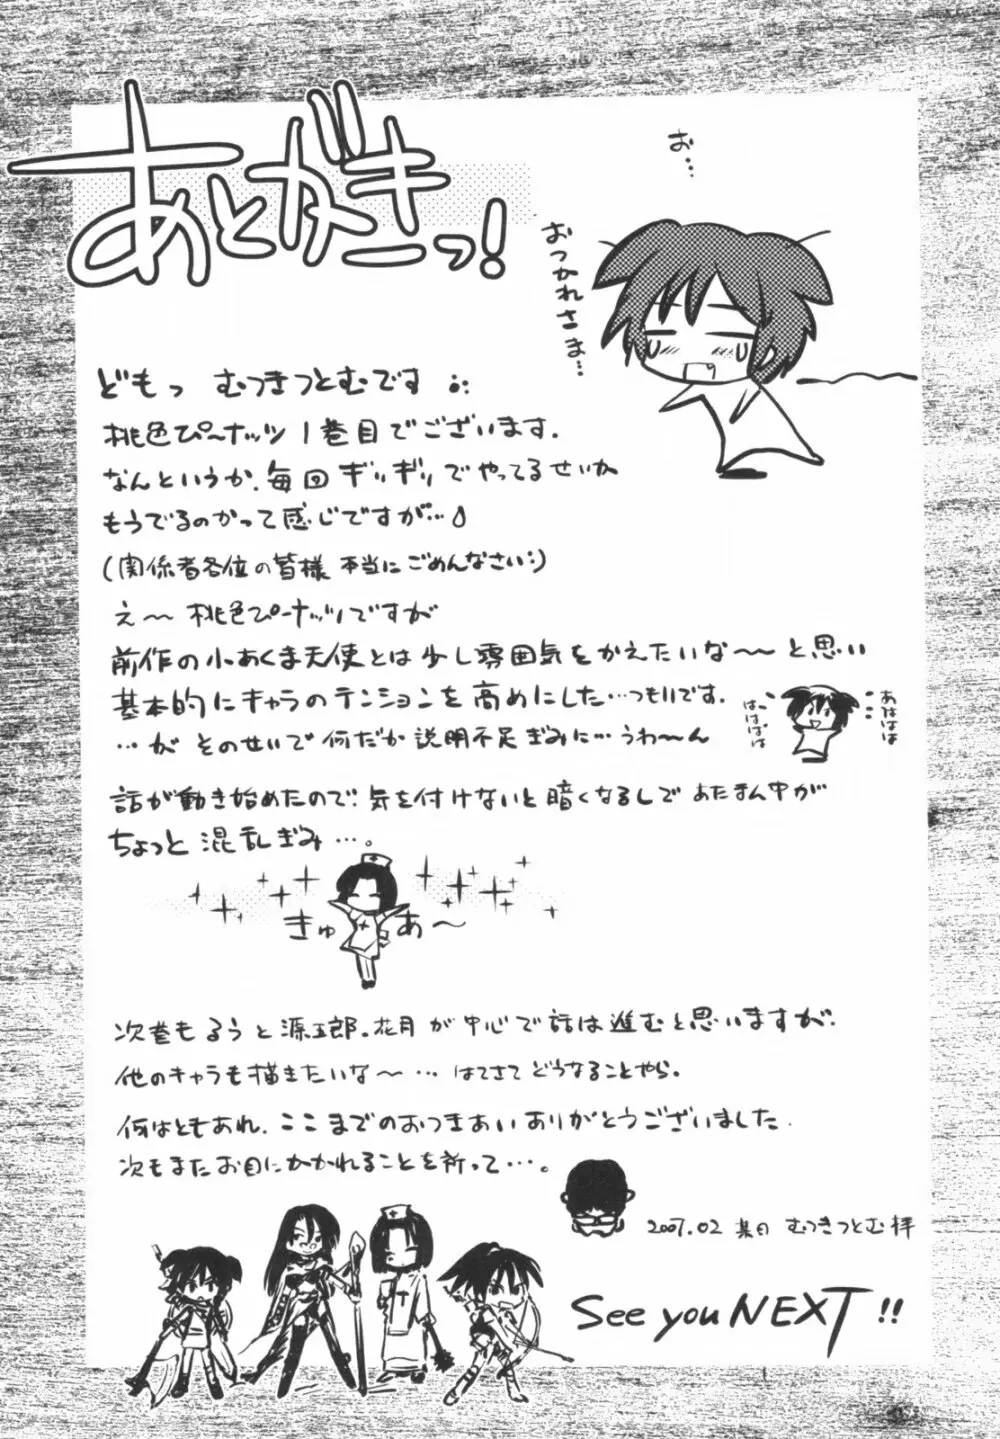 あとがきっ!
お…
おつかれさま…
どもっ むつきつとむです
桃色ぴーナッツ1巻目でございます.
なんというか.毎回ギリギリでやってるせいか
もうでるのかって感じですが…
(関係者各位の皆様 本当にごめんなさい)
え〜桃色ぴーナッツですが
前作の小あくま天使とは少し雰囲気をかえたいな〜と思い
基本的にキャラのテンションを高めにした…つもりです.
…が そのせいで何だか説明不足ぎみに…うわ〜ん
あははは
はははは
話が動き始めたので.気を付けないと暗くなるしで あたまん中が
ちょっと混乱ぎみ…。
きゅあ〜
次巻もるうと源五郎.花月が中心で話は進むと思いますが.
他のキャラも描きたいな〜…はてさてどうなることやら。
何はともあれ.ここまでのおつきあいありがとうございました.
次もまたお目にかかれることを祈って…。
2007.02 某日 むつきつとむ拝
See you NEXT!!